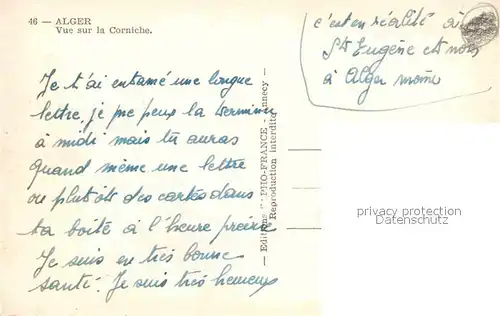 46 — ALGER
Vue sur la Corniche.
c'est en réalité à
St Eugène et non
à Alger même
Je t'ai entamé une longue
lettre, je ne peux la terminer
à midi mais tu auras
quand même une lettre
ou plutôt des cartes dans
ta boîte à l'heure précise
Je suis en très bonne
santé. Je suis très heureux
— Editions PHO-FRANCE - Annecy —
Reproduction interdite
privacy protection
Datenschutz